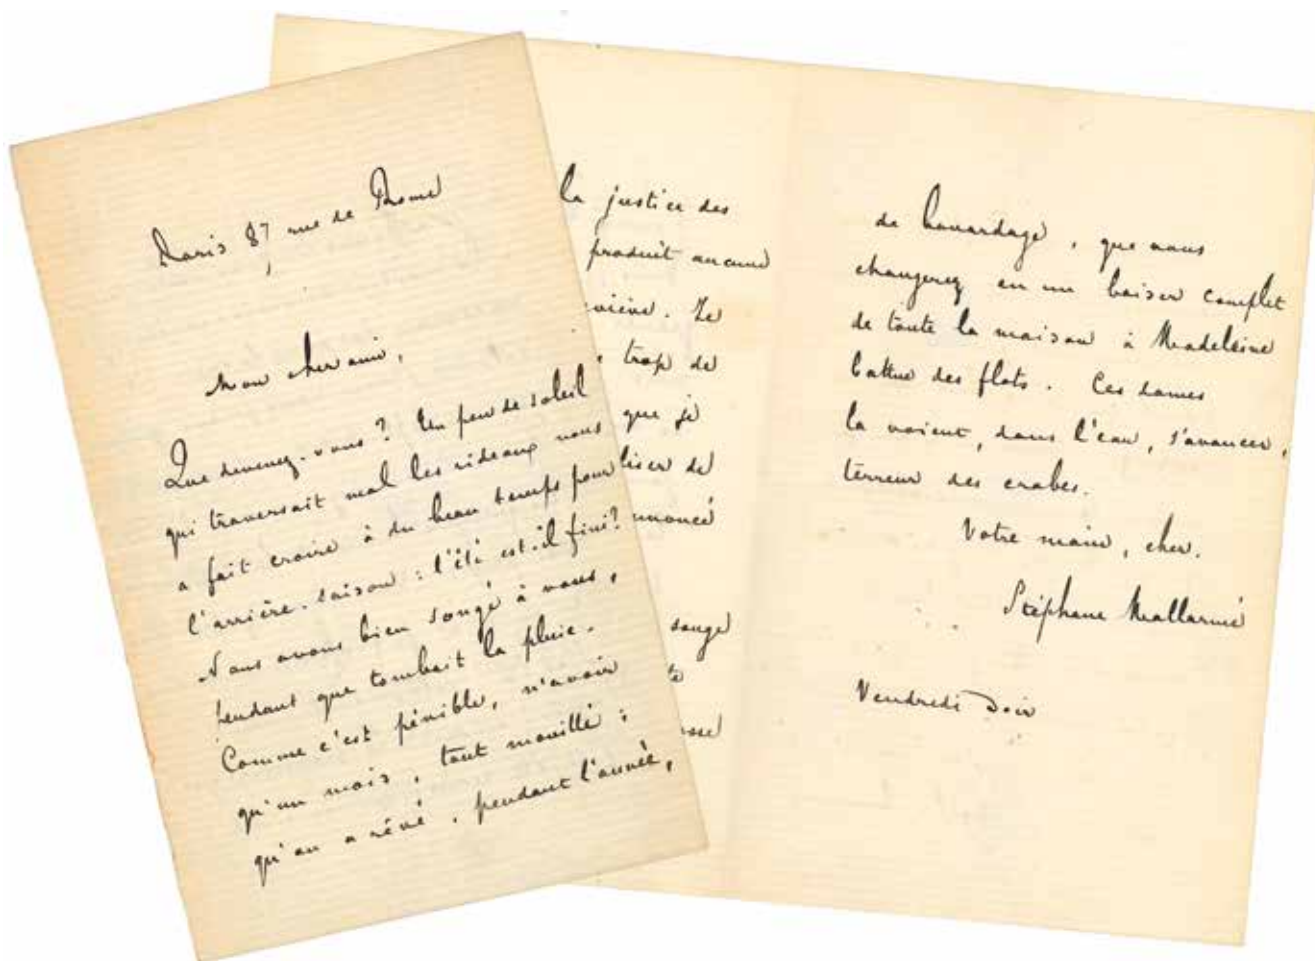 Paris 87 rue de Rome
Mon cher ami,
Que devenez-vous ? Un peu de soleil
qui traversait mal les rideaux nous
a fait croire à du beau temps pour
l'arrière-saison : l'été est-il fini?
Nous avons bien songé à vous,
pendant que tombait la pluie.
Comme c'est pénible, n'avoir
qu'un mois, tout mouillé :
qu'on a rêvé, pendant l'année,
la justice des
produit aucune
viève. Le
trop de
que je
liser de
nnoncé
songe
te
asse
de bavardage, que vous
changerez en un baiser complet
de toute la maison à Madeleine
battue des flots. Ces dames
la voient, dans l'eau, s'avancer,
terreur des crabes.
Votre main, cher.
Stéphane Mallarmé
Vendredi Soir